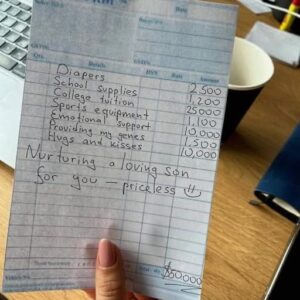 Date
Details HSN Rate Amount
Diapers 2,500
School supplies 1,200
College tuition 25000
Sports equipment 1,100
Emotional support 10,000
Providing my genes 1,500
Hugs and kisses 10,000
Nurturing a loving son
for you — priceless
Total $50000